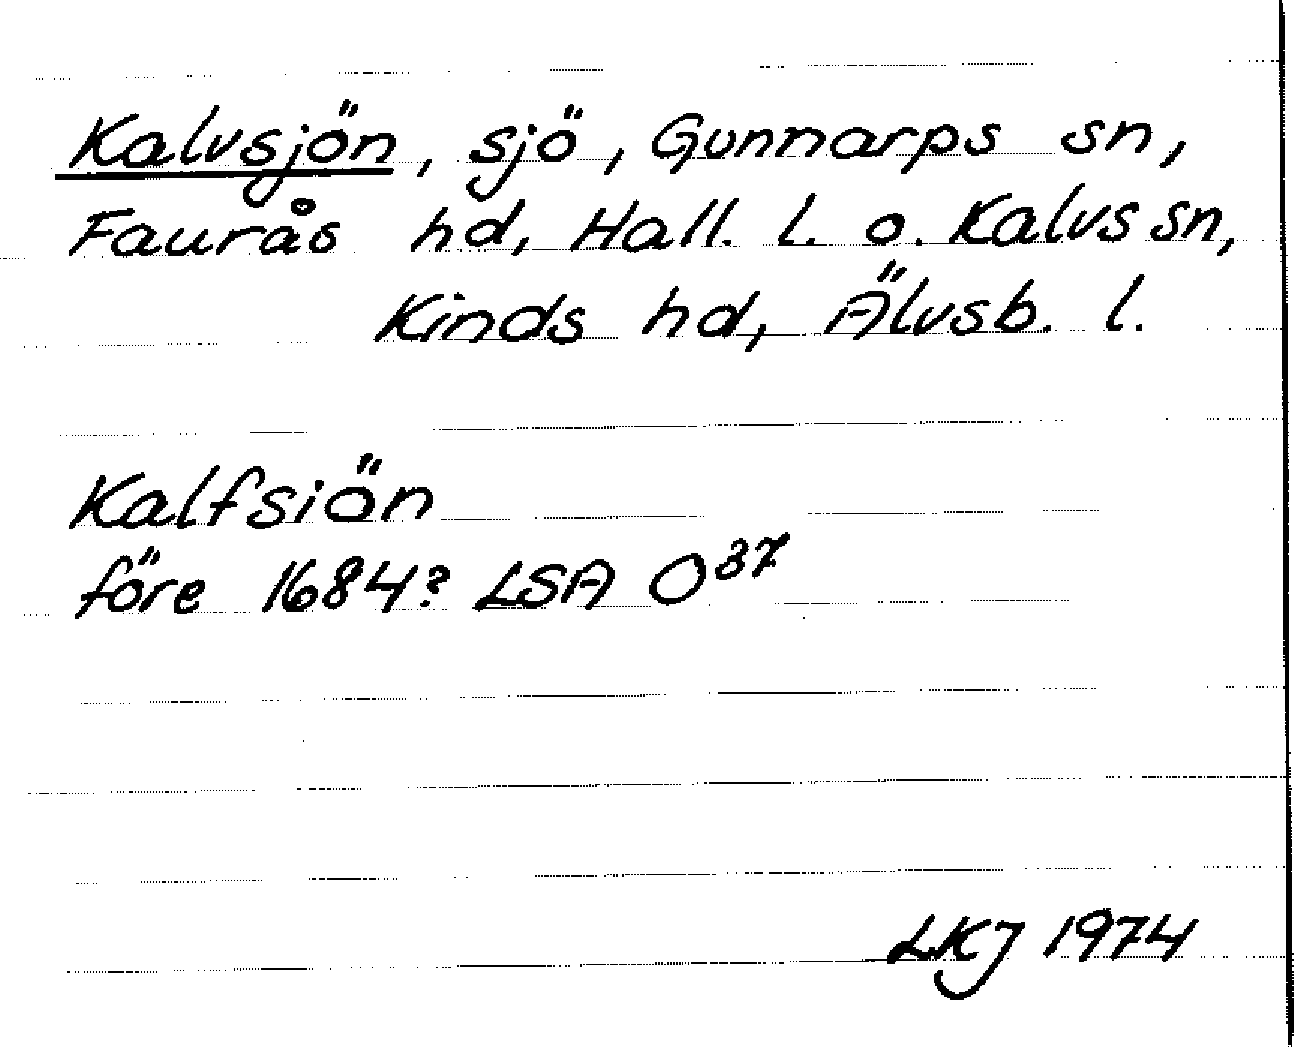 Kalvsjön, sjö, Gunnarps sn,
Faurås hd, Hall. l. o. Kalvs sn,
Kinds hd, Älvsb. l.
Kalfsiön
före 1684? LSA O³⁷
LKJ 1974